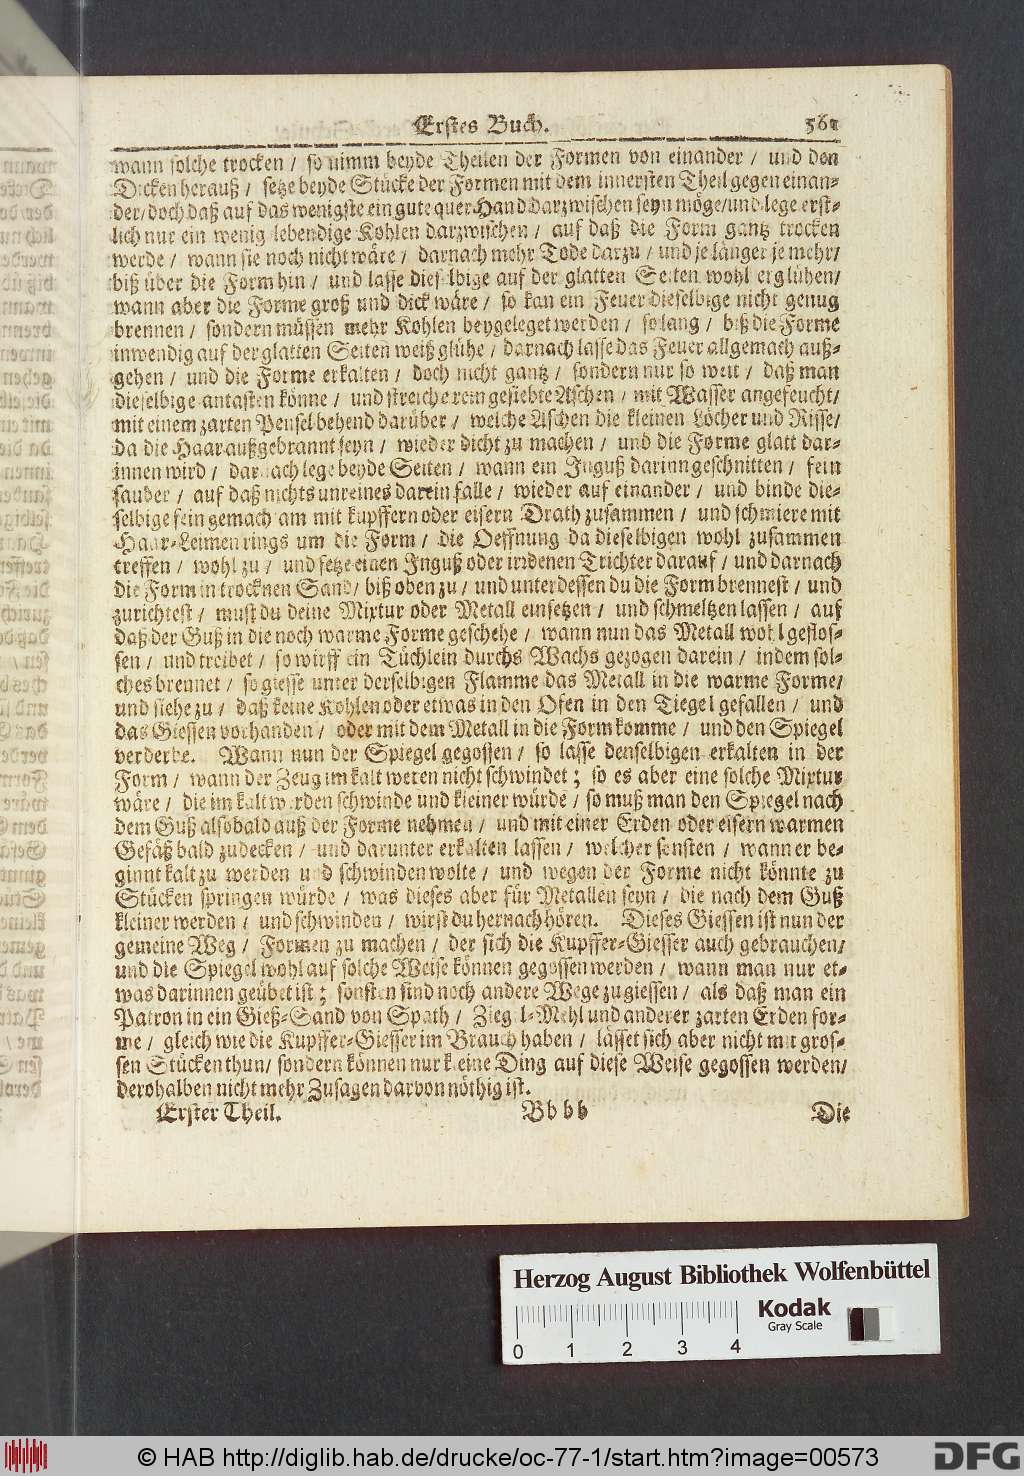 Erstes Buch. 561
wann solche trocken / so nimm beyde Theilen der Formen von einander / und den
Dicken herauß / setze beyde Stücke der Formen mit dem innersten Theil gegen einan-
der/doch daß auf das wenigste ein gute quer Hand darzwischen seyn möge/und lege erst-
lich nur ein wenig lebendige Kohlen darzwischen / auf daß die Form gantz trocken
werde / wann sie noch nicht wäre / darnach mehr Tode darzu / und je länger je mehr/
biß über die Form hin / und lasse dieselbige auf der glatten Seiten wohl erglühen/
wann aber die Forme groß und dick wäre / so kan ein Feuer dieselbige nicht genug
brennen / sondern müssen mehr Kohlen beygeleget werden / so lang / biß die Forme
inwendig auf der glatten Seiten weiß glühe / darnach lasse das Feuer allgemach auß-
gehen / und die Forme erkalten / doch nicht gantz / sondern nur so weit / daß man
dieselbige antasten könne / und streiche rein gesiebte Aschen / mit Wasser angefeucht/
mit einem zarten Pensel behend darüber / welche Aschen die kleinen Löcher und Risse/
da die Haar außgebrannt seyn / wieder dicht zu machen / und die Forme glatt dar-
innen wird / darnach lege beyde Seiten / wann ein Inguß darinn geschnitten / fein
sauber / auf daß nichts unreines darein falle / wieder auf einander / und binde die-
selbige fein gemach am mit kupffern oder eisern Drath zusammen / und schmiere mit
Haar-Leimen rings um die Form / die Oeffnung da dieselbigen wohl zusammen
treffen / wohl zu / und setze einen Inguß oder irrdenen Trichter darauf / und darnach
die Form in trocknen Sand / biß oben zu / und unterdessen du die Form brennest / und
zurichtest / must du deine Mixtur oder Metall einsetzen / und schmeltzen lassen / auf
daß der Guß in die noch warme Forme geschehe / wann nun das Metall wohl geflos-
sen / und treibet / so wirff ein Tüchlein durchs Wachs gezogen darein / indem sol-
ches brennet / so giesse unter derselbigen Flamme das Metall in die warme Forme/
und siehe zu / daß keine Kohlen oder etwas in den Ofen in den Tiegel gefallen / und
das Giessen vorhanden / oder mit dem Metall in die Form komme / und den Spiegel
verderbe. Wann nun der Spiegel gegossen / so lasse denselbigen erkalten in der
Form / wann der Zeug im kalt weren nicht schwindet; so es aber eine solche Mixtur
wäre / die im kalt werden schwinde und kleiner würde / so muß man den Spiegel nach
dem Guß alsobald auß der Forme nehmen / und mit einer Erden oder eisern warmen
Gefäß bald zudecken / und darunter erkalten lassen / welcher sonsten / wann er be-
ginnt kalt zu werden und schwinden wolte / und wegen der Forme nicht könnte zu
Stücken springen würde / was dieses aber für Metallen seyn / die nach dem Guß
kleiner werden / und schwinden / wirst du hernach hören. Dieses Giessen ist nun der
gemeine Weg / Formen zu machen / der sich die Kupffer-Giesser auch gebrauchen/
und die Spiegel wohl auf solche Weise können gegossen werden / wann man nur et-
was darinnen geübet ist; sonsten sind noch andere Wege zu giessen / als daß man ein
Patron in ein Gieß-Sand von Spath / Ziegel-Mehl und anderer zarten Erden for-
me / gleich wie die Kupffer-Giesser im Brauch haben / lässet sich aber nicht mit gros-
sen Stücken thun/ sondern können nur kleine Ding auf diese Weise gegossen werden/
derohalben nicht mehr Zusagen darvon nöthig ist.
Erster Theil. Bbbb Die
Herzog August Bibliothek Wolfenbüttel
Kodak
Gray Scale
0 1 2 3 4
© HAB http://diglib.hab.de/drucke/oc-77-1/start.htm?image=00573
DFG